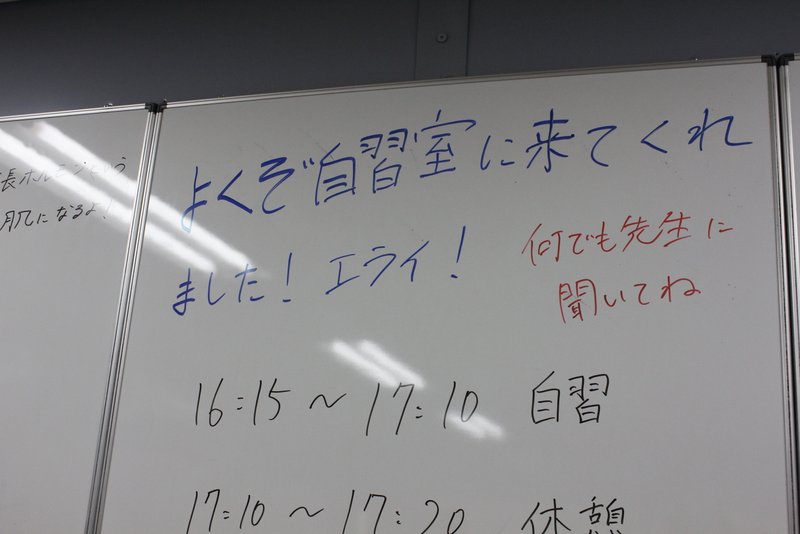 長ホルモンという
肌になるよ!
よくぞ自習室に来てくれ
ました! エライ!
何でも先生に
聞いてね
16:15～17:10 自習
17:10～17:20 休憩